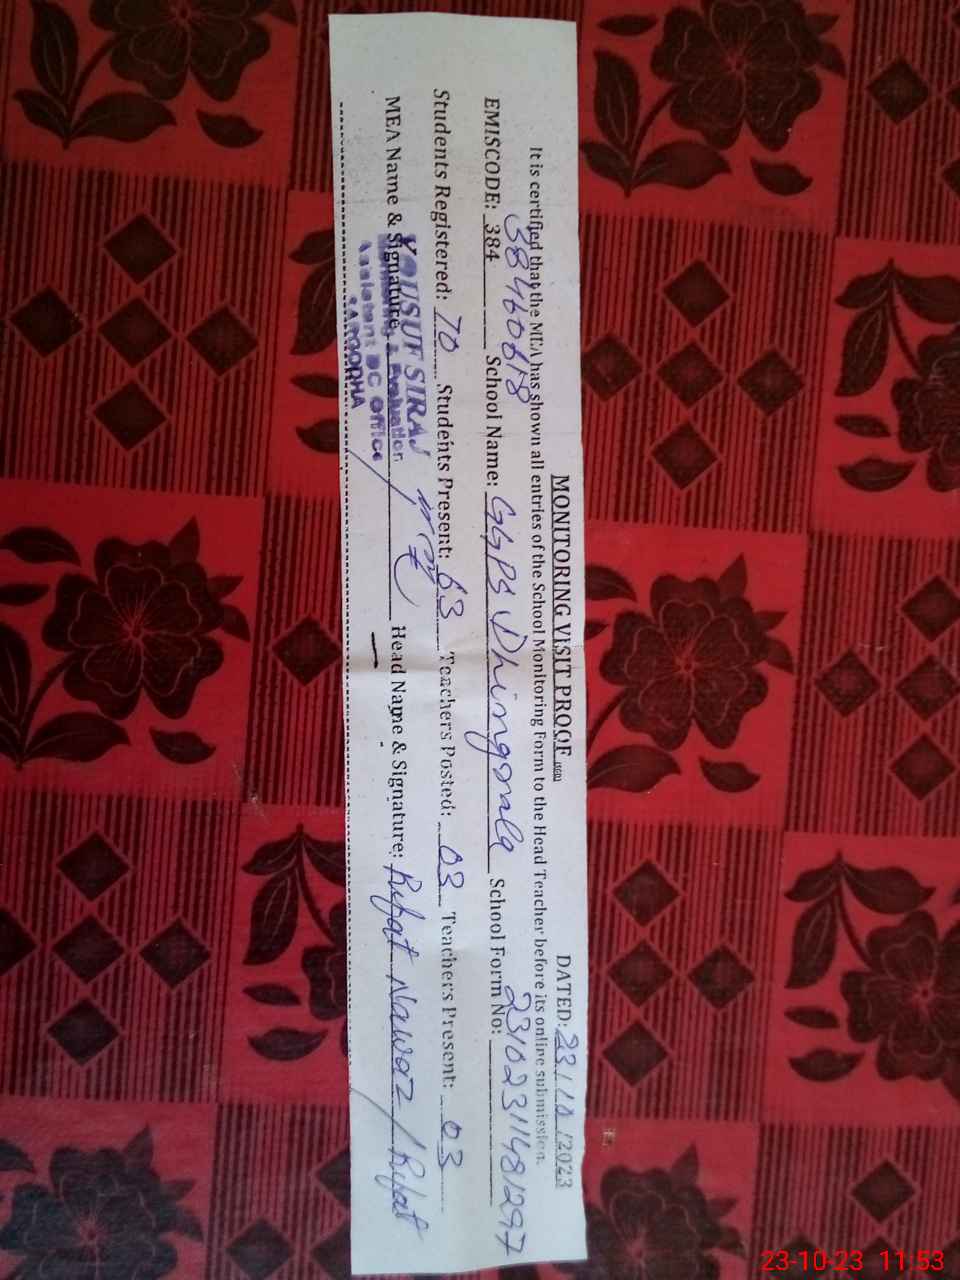 MONITORING VISIT PROOF DATED: 23/10/2023
It is certified that the MEA has shown all entries of the School Monitoring Form to the Head Teacher before its online submission.
38460618 23102311481297
EMISCODE: 384 School Name: GGPS Dhingrala School Form No:
Students Registered: 70 Students Present: 63 Teachers Posted: 03 Teachers Present: 03
MEA Name & Signature: Head Name & Signature: Rifat Nawaz / Rifat
YOUSUF SIRAJ
Monitoring & Evaluation
Assistant DC Office
SARGODHA
23-10-23 11:53